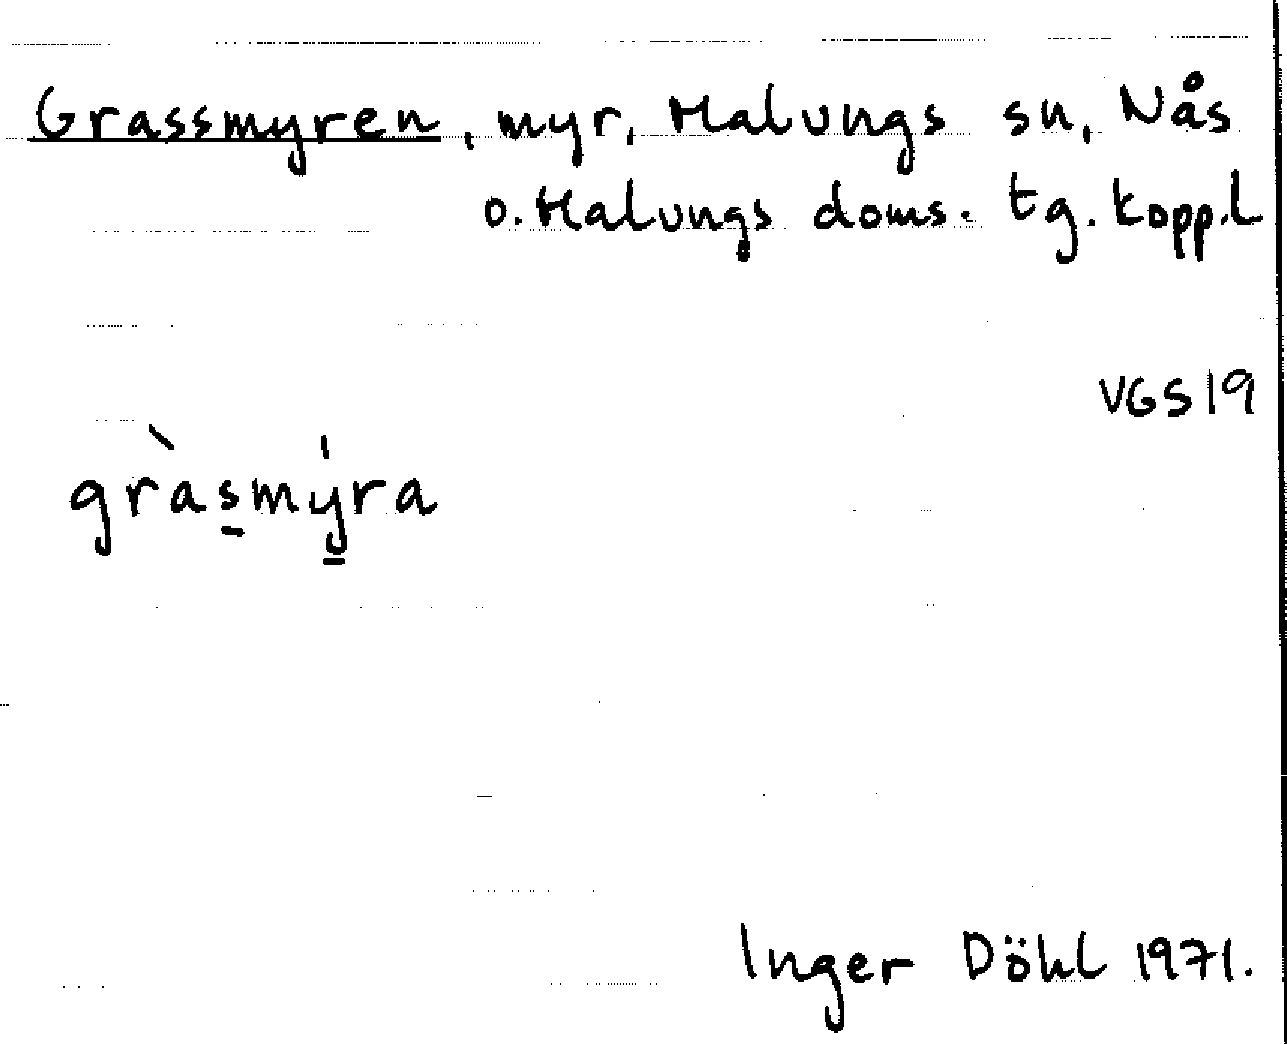 Grassmyren, myr, Malungs sn, Nås
o. Malungs doms. tg. Kopp.l
VGS19
gràs̠mý̠ra
Inger Döhl 1971.